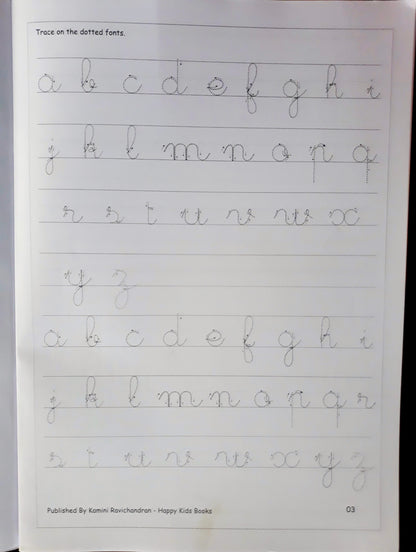 Trace on the dotted fonts.
a b c d e f g h i
j k l m n o p q
r s t u v w x
y z
a b c d e f g h i
j k l m n o p q r
s t u v w x y z
Published By Kamini Ravichandran - Happy Kids Books 03